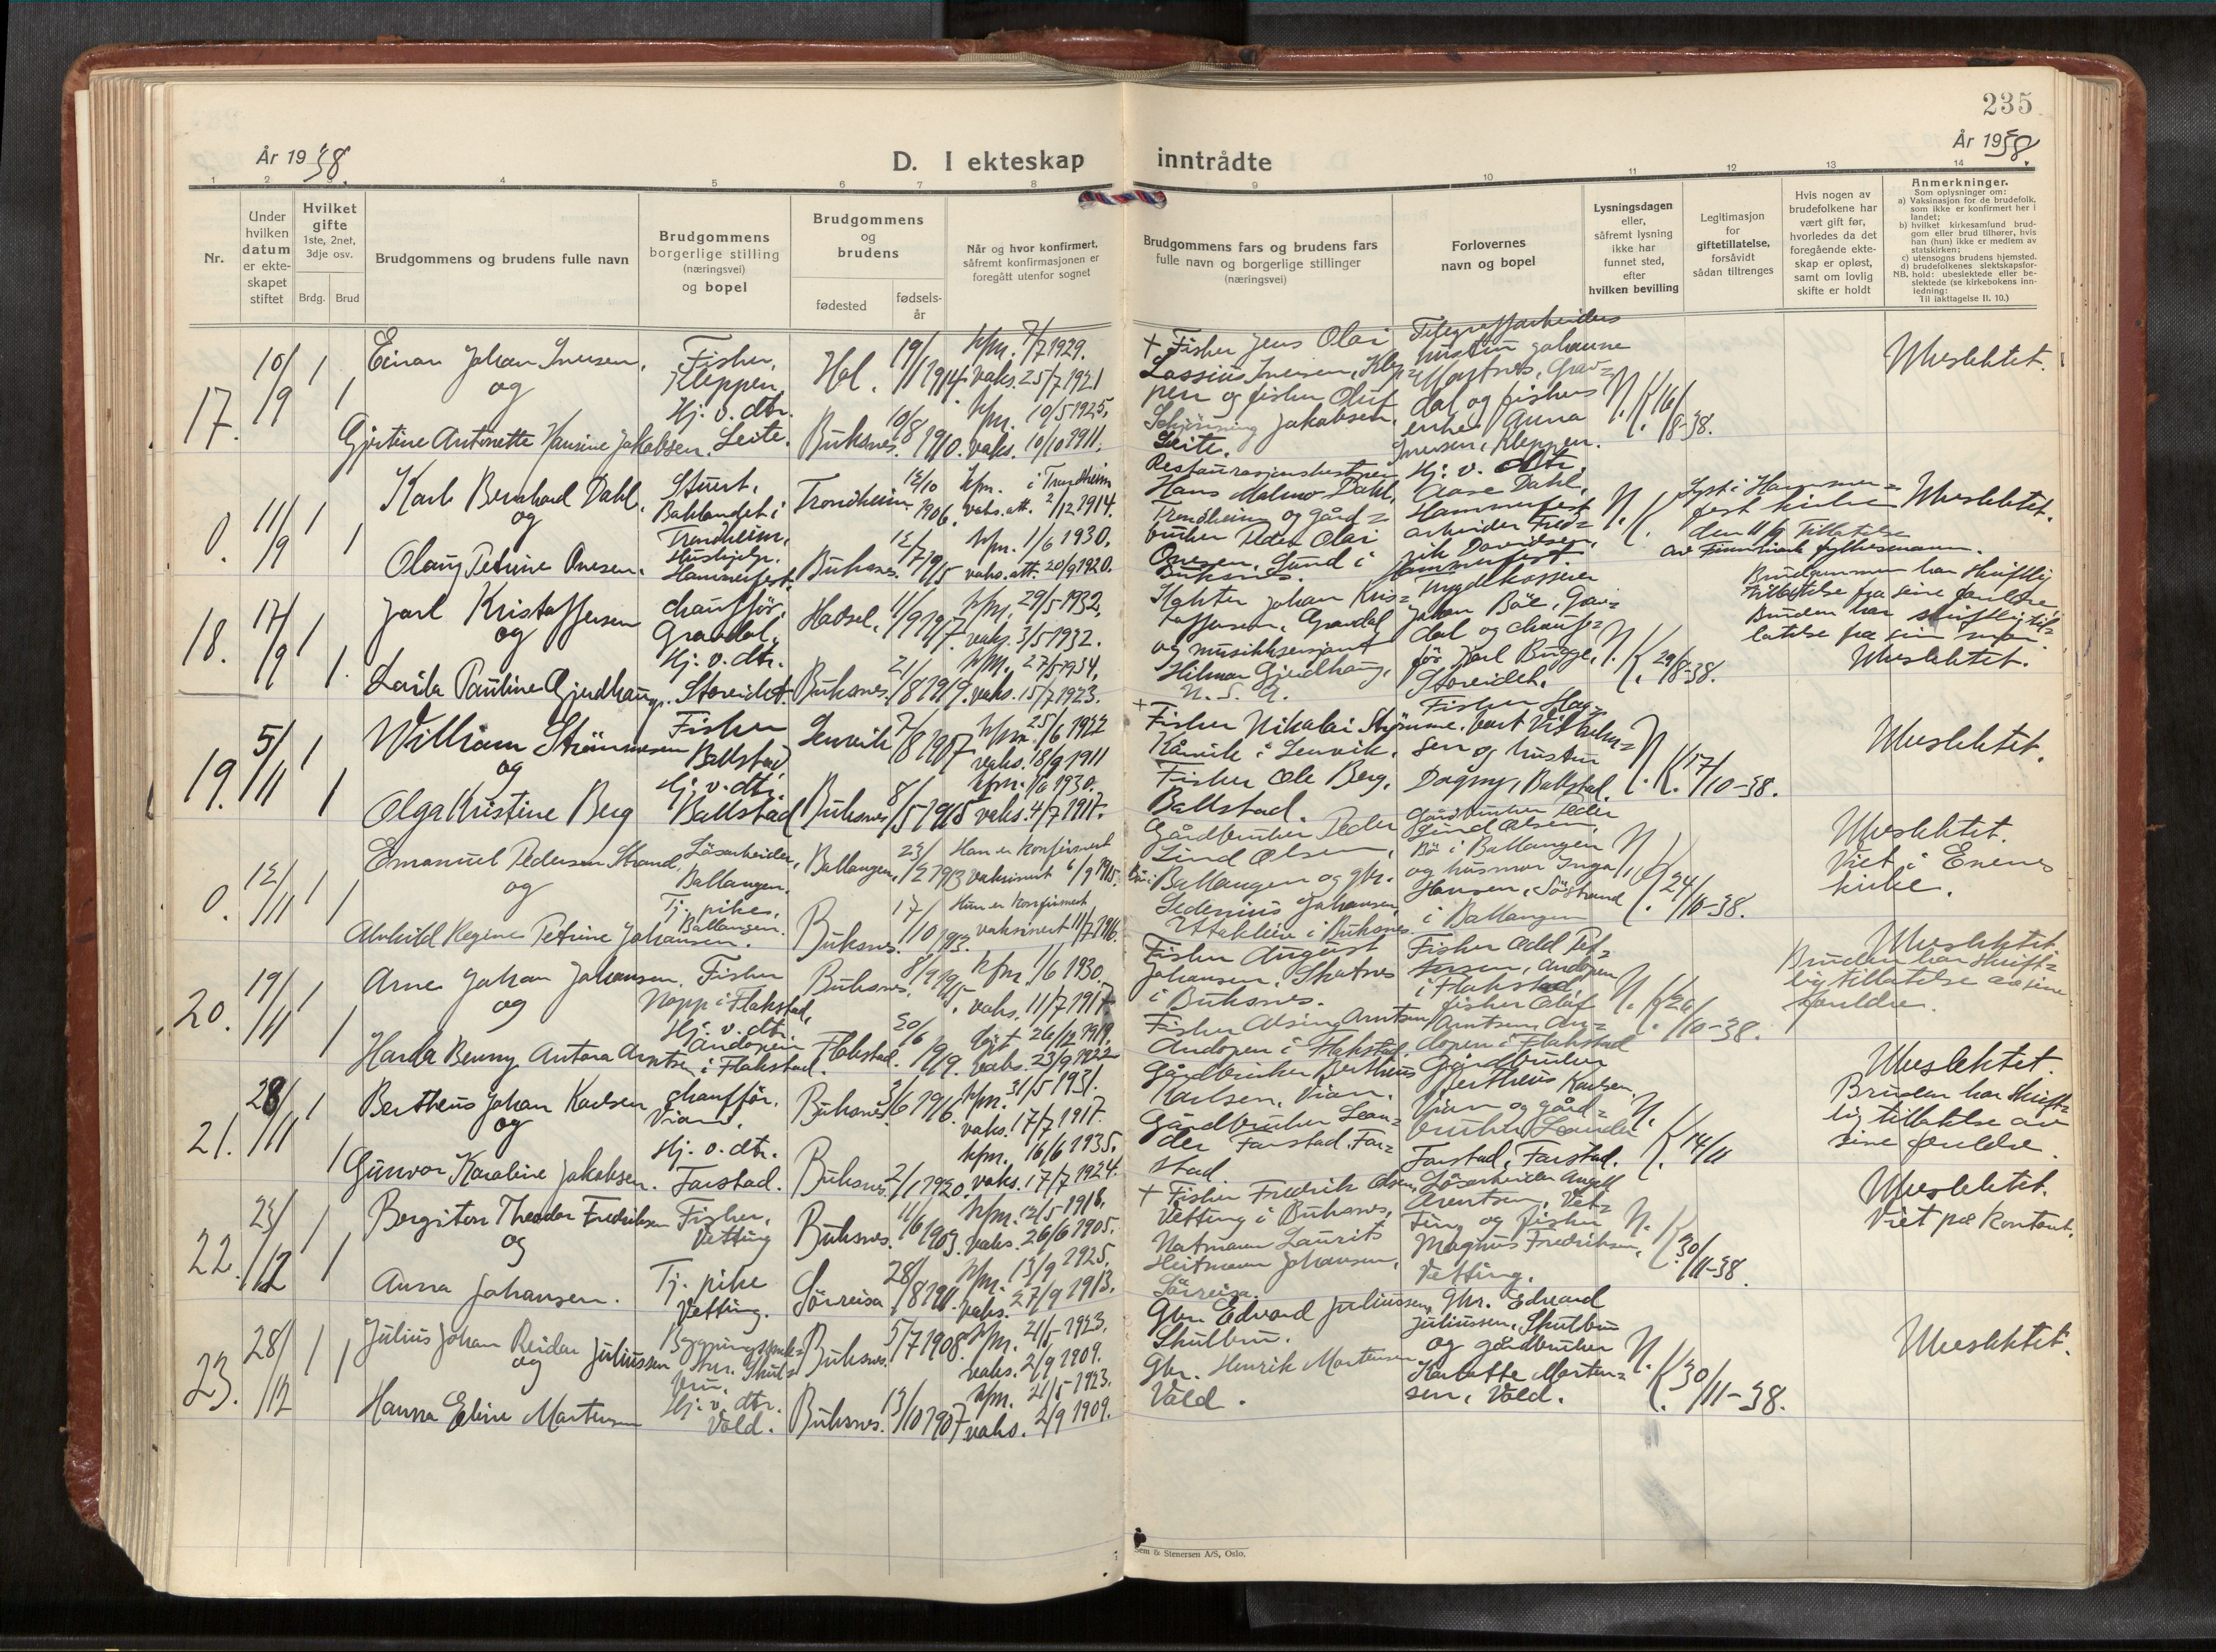 235
År 1938.
D. I ekteskap inntrådte
År 1938.
1 2 3 4 5 6 7 8 9 10 11 12 13 14
Nr.
Under hvilken datum er ekte-skapet stiftet
Hvilket gifte
1ste, 2net, 3dje osv.
Brdg. Brud
Brudgommens og brudens fulle navn
Brudgommens borgerlige stilling (næringsvei) og bopel
Brudgommens og brudens
fødested
fødsels-år
Når og hvor konfirmert, såfremt konfirmasjonen er foregått utenfor sognet
Brudgommens fars og brudens fars fulle navn og borgerlige stillinger (næringsvei)
Forlovernes navn og bopel
Lysningsdagen eller, såfremt lysning ikke har funnet sted, efter hvilken bevilling
Legitimasjon for giftetillatelse, forsåvidt sådan tiltrenges
Hvis nogen av brudefolkene har vært gift før, hvorledes da det foregående ekte-skap er opløst, samt om lovlig skifte er holdt
Anmerkninger.
Som oplysninger om:
a) Vaksinasjon for de brudefolk, som ikke er konfirmert her i landet;
b) hvilket kirkesamfund brud-gom eller brud tilhører, hvis han (hun) ikke er medlem av statskirken;
c) utensogns brudens hjemsted.
d) brudefolkenes slektskapsfor-hold: ubeslektede eller be-slektede (se kirkebokens inn-ledning:
NB. Til iakttagelse II. 10.)
17. 10/9 1 1
Einar Johan Iversen.
og
Gjertine Antonette Hansine Jakobsen.
Fisker,
Kleppen.
Hj. v. dtr.
Leite.
Hol. 19/1 1914. kfm. 7/7 1929.
vaks. 25/7 1921
Buksnes. 10/8 1910. kfm. 10/5 1925.
vaks. 10/10 1911.
+ Fisker Jens Olai
Lassius Iversen, Klep=
pen og fisker Oluf
Schjønning Jakobsen,
Leite.
Telegrafarbeiders
hustru Johanne
Martnes, Grav=
dal og fiskers
enke Anna
Iversen, Kleppen.
N. K. 16/8-38.
Ubeslektet.
0. 11/9 1 1
Karl Bernhard Dahl.
og
Olaug Petrine Ovesen.
Stuert,
Baklandet i
Trondheim.
Hushjelp.
Hammerfest.
Trondheim 12/10 1906. kfm. i Trondheim
vaks. att. 2/12 1914.
Buksnes. 12/7 1915 kfm. 1/6 1930.
vaks. att. 20/9 1920.
Restaurasjonsbestyrer
Hans Malmo Dahl,
Trondheim og gård=
bruker Peder Olai
Ovesen, Sund i
Buksnes.
Hj. v. dtr.
Aase Dahl,
Hammerfest
arbeider Fred=
rik Davidsen,
Hammerfest.
N. K.
Lyst i Hammer=
fest kirke
den 11/9 Tillatelse
av Finnmark fylkesmann.
Ubeslektet.
18. 17/9 1 1.
Jarl Kristoffersen
og
Laila Pauline Gjerdhaug.
Chauffør,
Gravdal.
Hj. v. dtr.
Storeidet.
Hadsel. 11/9 1917. kfm. 29/5 1932.
vaks. 3/5 1932.
Buksnes. 21/8 1919. kfm. 27/5 1934.
vaks. 15/7 1923.
Johan Kris=
toffersen, Gravdal
og musikksersjant
Hilmar Gjerdhaug,
U. S. A.
Trygdekasserer
Johan Böe, Grav=
dal og chauf=
før Karl Brygge,
Storeidet.
N. K. 29/8-38.
Brudgommen har skriftlig
tillatelse fra sine foreldre.
Bruden har skriftlig til=
latelse fra sin mor.
Ubeslektet.
19. 5/11 1 1
William Strömmesen
og
Olga Kristine Berg
Fisker
Ballstad.
Hj. v. dtr.
Ballstad
Lenvik 7/8 1907 kfm. 25/6 1922
vaks. 18/9 1911
Buksnes 8/5 1915 kfm. 1/6 1930.
vaks. 4/7 1917.
+ Fisker Nikolai Strömme.
Kårvik i Lenvik.
Fisker Ole Berg,
Ballstad.
Fisker Hag=
bart Vilhelm=
sen og hustru
Dagny, Ballstad.
N. K. 17/10-38.
Ubeslektet.
0. 12/11 1 1
Emanuel Pedersen Strand.
og
Alvhild Regine Petrine Johansen.
Løsarbeider,
Ballangen.
Tj. pike,
Ballangen.
Ballangen, 23/2 1913 Han er konfirmert
vaksinert 6/9 1915.
Buksnes. 17/10 1913. Hun er konfirmert
vaksinert 11/7 1916.
Gårdbruker Peder
Lind Olsen,
Bø i Ballangen og gbr.
Sedenius Johansen,
Uttakleiv i Buksnes.
Gårdbruker Peder
Lind Olsen,
Bö i Ballangen
og husmor Inga
Hansen, Söstrand
i Ballangen
N. K. 24/10-38.
Ubeslektet.
Viet i Evenes
kirke.
20. 19/11 1 1
Arne Johan Johansen.
og
Harda Benny Antora Arntsen
Fisker
Napp i Flakstad.
Hj. v. dtr.
Andopen
i Flakstad.
Buksnes. 8/9 1915. kfm. 1/6 1930.
vaks. 11/7 1917
Flakstad. 30/6 1919. døpt 26/12 1919.
vaks. 23/9 1922
Fisker August
Johansen, Skotnes
i Buksnes.
Fisker Alsing Arntsen
Andopen i Flakstad.
Fisker Odd Pet=
tersen, Andopen
i Flakstad,
fisker Olaf
Arntsen An=
dopen i Flakstad
N. K. 26/10-38.
Ubeslektet.
Bruden har skrift=
lig tillatelse av sine
foreldre.
21. 28/11 1 1
Bertheus Johan Karlsen
og
Gunvor Karoline Jakobsen.
Chauffør.
Vian.
Hj. v. dtr.
Farstad.
Buksnes. 3/6 1916. kfm. 31/5 1931.
vaks. 17/7 1917.
Buksnes. 2/1 1920. kfm. 16/6 1935.
vaks. 17/7 1924.
Gårdbruker Bertheus
Karlsen, Vian.
Gårdbruker Lean=
der Farstad, Far=
stad.
Gårdbruker
Bertheus Karlsen,
Vian og gård=
bruker Leander
Farstad, Farstad.
N. K. 14/11
Ubeslektet.
Bruden har skrift=
lig tillatelse av
sine foreldre.
22. 23/12 1 1
Bergiton Theodor Fredriksen
og
Anna Johansen.
Fisker,
Vetting
Tj. pike
Vetting.
Buksnes. 11/6 1903. kfm. 12/5 1918.
vaks. 26/6 1905.
Sørreisa 28/8 1911. kfm. 13/9 1925.
vaks. 27/9 1913.
+ Fisker Fredrik Olsen,
Vetting i Buksnes,
Natmann Laurits
Heitmann Johansen,
Sørreisa.
Løsarbeider Angell
Arentsen, Vet=
ting og fisker
Magnus Fredriksen,
Vetting.
N. K. 30/11-38.
Ubeslektet.
Viet på kontoret.
23. 28/12 1 1
Julius Johan Reidar Juliussen
og
Hanna Eline Mortensen
Skul=
bru.
Hj. v. dtr.
Vold.
Buksnes. 5/7 1908. kfm. 21/5 1923.
vaks. 2/9 1909.
Buksnes. 13/10 1907 kfm. 21/5 1923.
vaks. 2/9 1909.
Gbr. Edvard Juliussen,
Skulbru.
Gbr. Henrik Mortensen
Vold.
Gbr. Edvard
Juliussen, Skulbru
og gårdbruker
Karlotte Morten=
sen, Vold.
N. K. 30/11-38.
Ubeslektet.
Sem & Stenersen A/S, Oslo.